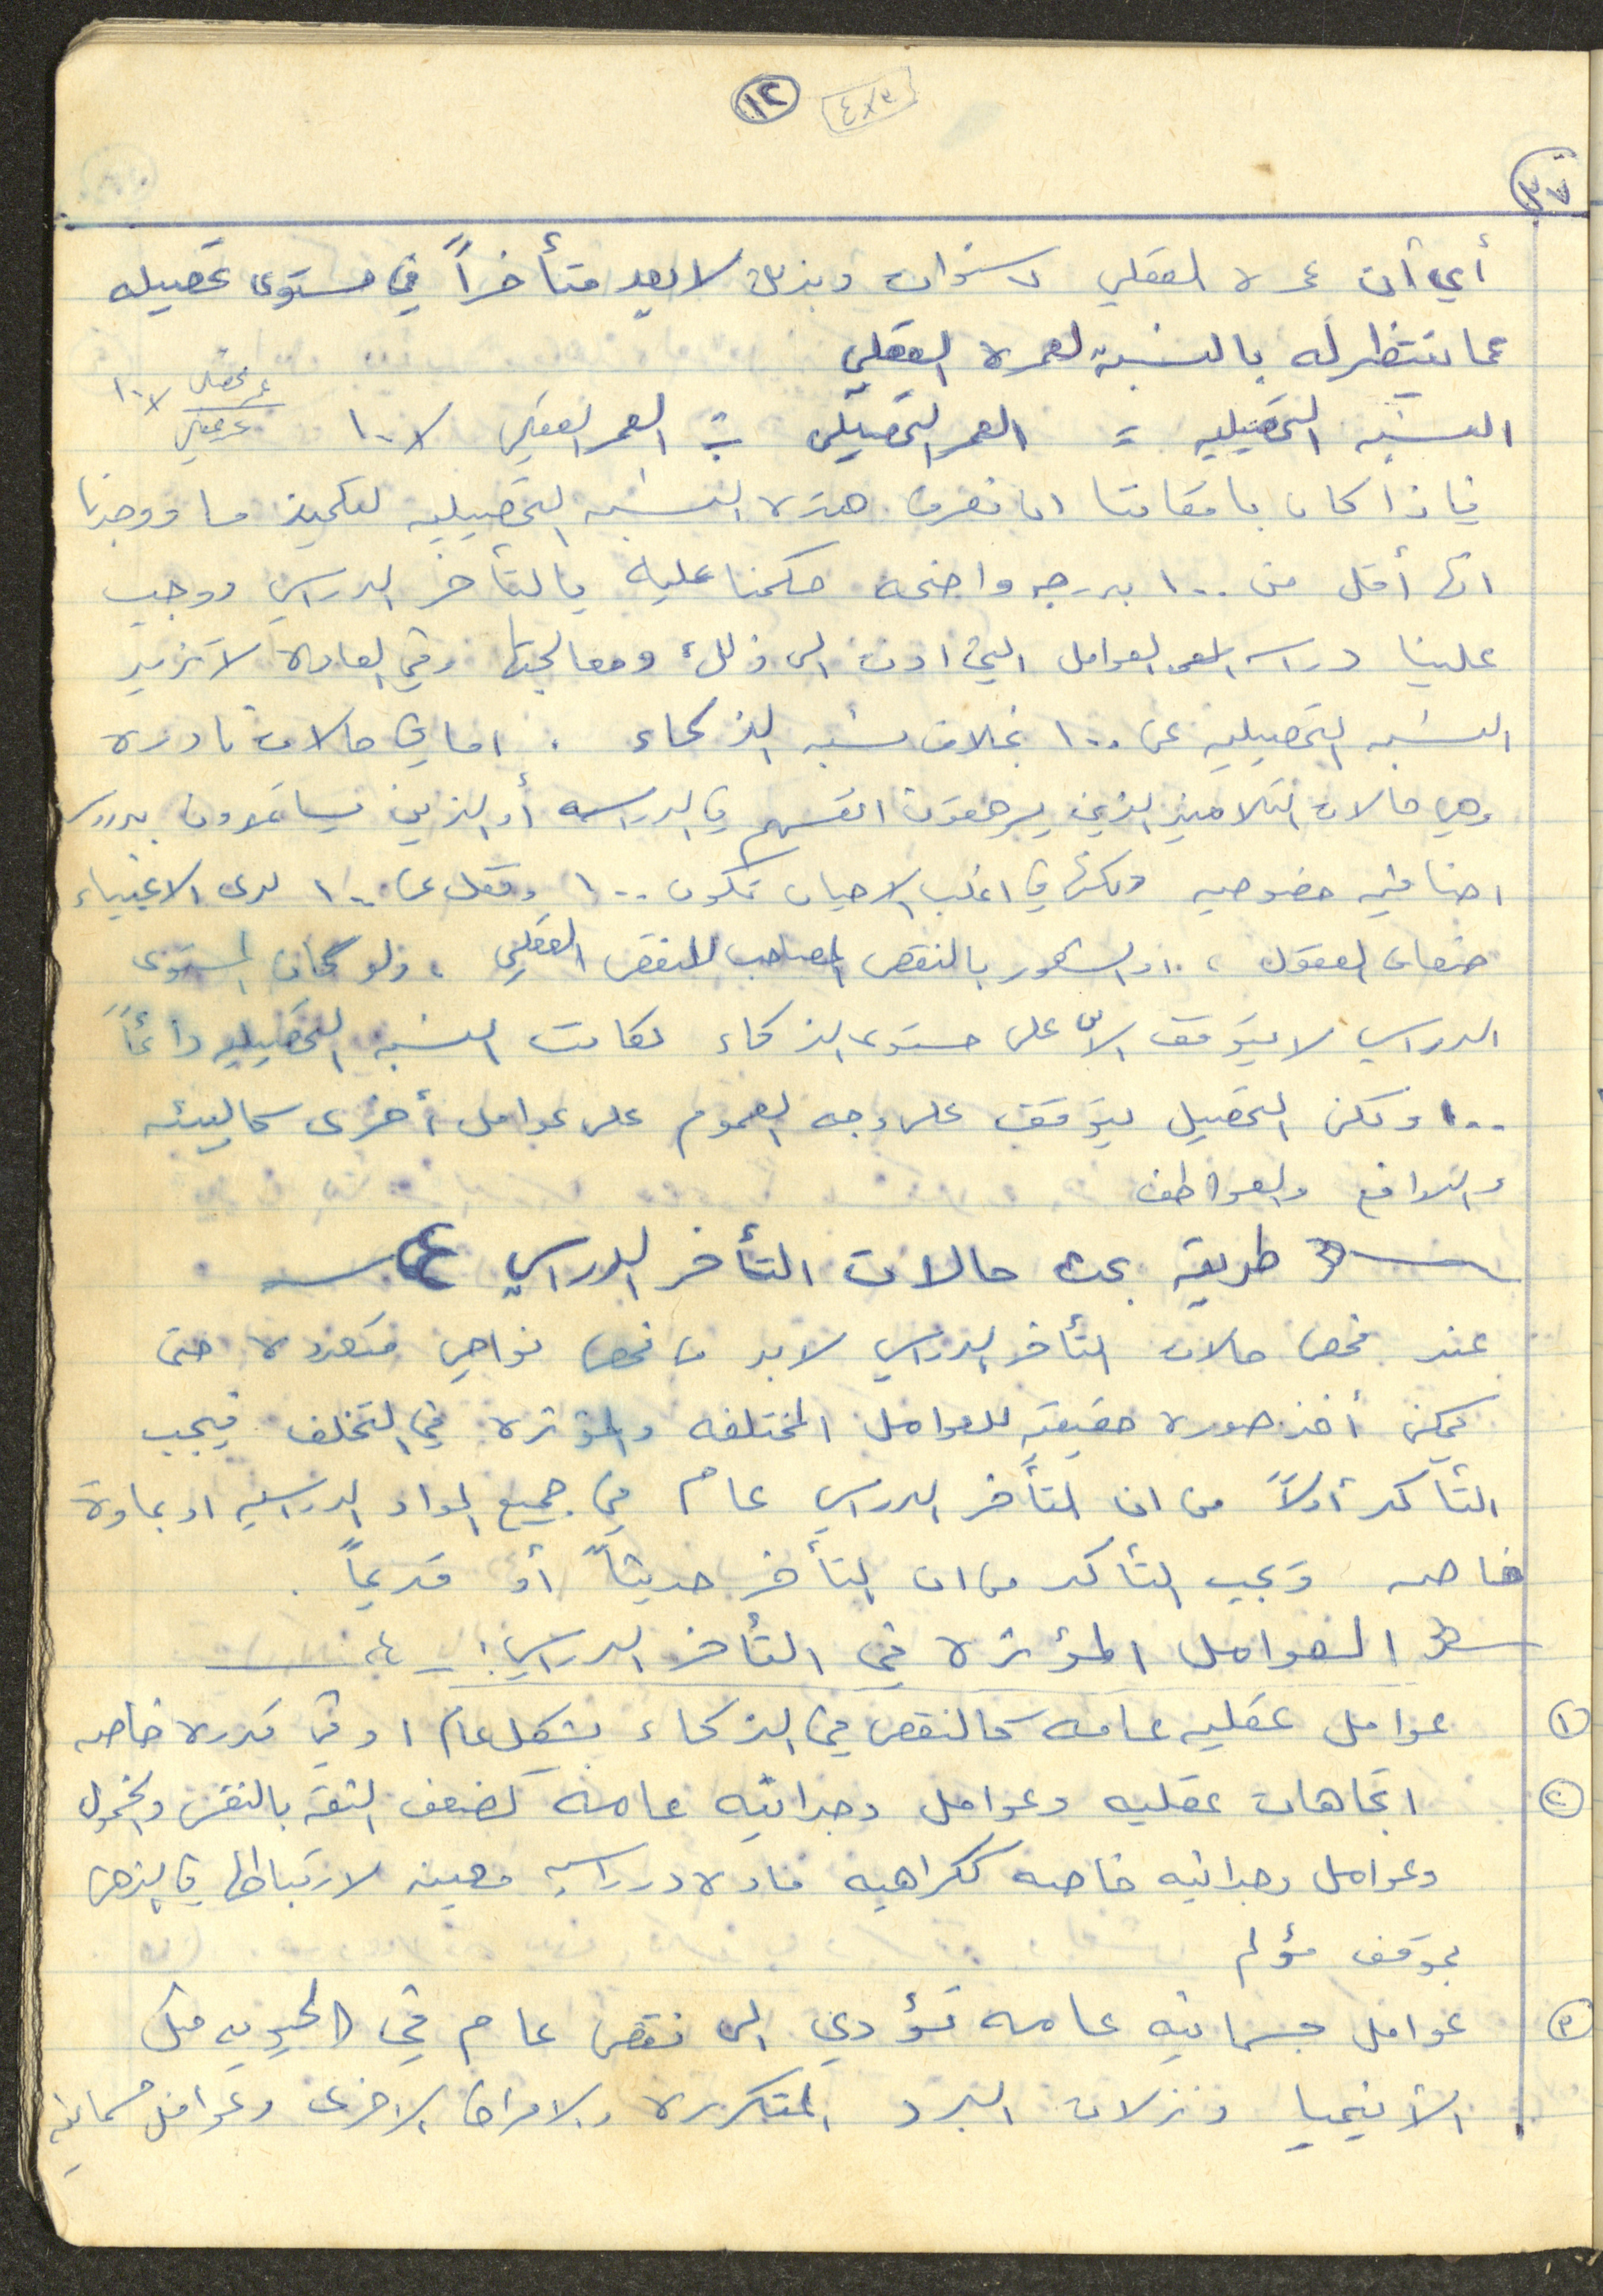 ١٢
٣٧
أي أن عمره العقلي ٧ سنوات وبذلك لا يعد متأخراً في مستوى تحصيله
عما ينتظر له بالنسبة لعمره العقلي
النسبه التحصيليه = العمر التحصيلي ÷ العمر العقلي × ١٠٠ عمر تحصيلي / عمر عقلي × ١٠٠
فاذا كان بامكاننا ان نعرف هذه النسبه التحصيليه لتلميذ ما ووجدنا
انها أقل من ١٠٠ بدرجه واضحه حكمنا عليه بالتأخر الدراسي ووجب
علينا دراسه العوامل التي ادت الى ذلك ومعالجتها وفي العاده لا تزيد
النسبه التحصيليه عن ١٠٠ بخلاف نسبه الذكاء . اما في حالات نادره
وهي حالات التلاميذ الذين يرهقون انفسهم في الدراسه أو الذين يساعدون بدروس
اضافيه خصوصيه ولكنها في اغلب الاحيان تكون ١٠٠ وتقل عن ١٠٠ لدى الاغبياء
ضعاف العقول ، او الشعور بالنقص المصاحب للنقص العقلي ، ولو كان المستوى
الدراسي لا يتوقف الا على مستوى الذكاء لكانت النسبه التحصيليه دائماً
١٠٠ ولكن التحصيل يتوقف على وجه العموم على عوامل أخرى كالبيئه
والدوافع والعواطف
طريقه بحث حالات التأخر الدراسي
عند فحص حالات التأخر الدراسي لابد من فحص نواحي متعدده حتى
يمكن أخذ صوره حقيقيه للعوامل المختلفه والمؤثره في التخلف فيجب
التأكد أولاً من ان التأخر الدراسي عام في جميع المواد الدراسيه او بمادة
خاصه ويجب التأكد من ان التأخر حديثاً أو قديماً .
العوامل المؤثره في التأخر الدراسي :-
١ عوامل عقليه عامه كالنقص في الذكاء بشكل عام او في قدره خاصه
٢ اتجاهات عقليه وعوامل وجدانيه عامه كضعف الثقه بالنفس والخمول
وعوامل وجدانيه خاصه ككراهيه ماده دراسيه معينه لارتباطها في الذهن
بموقف مؤلم
٣ عوامل جسمانيه عامه تؤدي الى نقص عام في الحيويه مثل
الأنيميا ونزلات البرد المتكرره والامراض الاخرى وعوامل جسمانيه